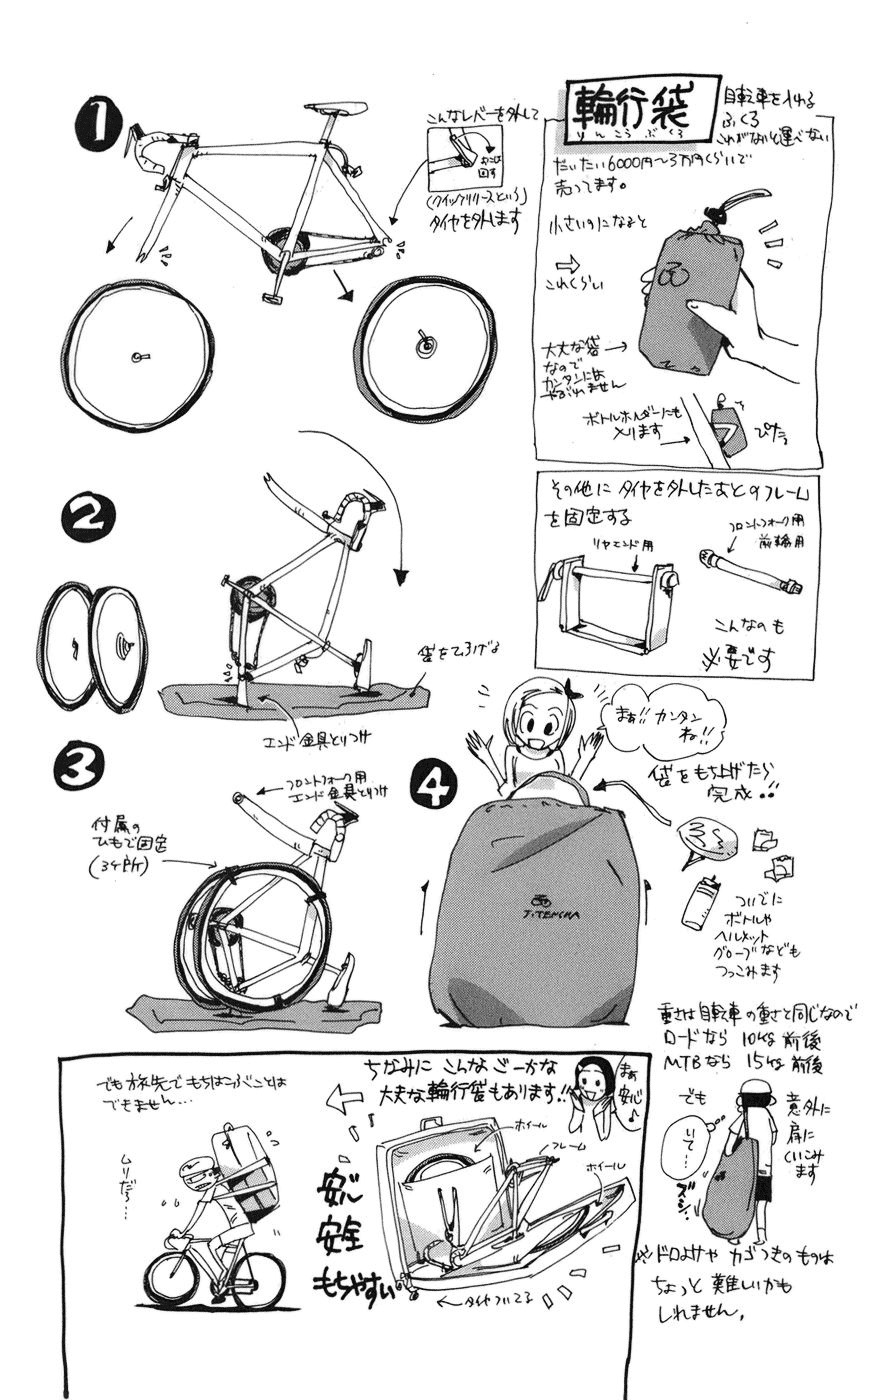 1
こんなレバーを外して
おこして
回す
(クイックリリースという)
タイヤを外します
輪行袋
りんこうぶくろ
自転車を入れる
ふくろ
これがないと運べない
だいたい6000円〜3万円くらいで
売ってます。
小さいのになると
⇨
これくらい
大丈な袋→
なので
カンタンには
やぶれません
ボトルホルダーにも
入ります
ぴたっ
その他に タイヤを外したあとのフレーム
を固定する
リヤエンド用
フロントフォーク用
前輪用
こんなのも
必要です
2
袋をひろげる
エンド金具とりつけ
3
フロントフォーク用
エンド金具とりつけ
付属の
ひもで固定
(3ヶ所)
4
まぁ!!カンタン
ね!!
袋をもち上げたら
完成!!
ついでに
ボトルや
ヘルメット
グローブなども
つっこみます
重さは自転車の重さと同じなので
ロードなら 10kg 前後
MTBなら 15kg 前後
でも
いて…
意外に
肩に
くいこみ
ます
ズシ
※ドロよけや カゴつきのものは
ちょっと 難しいかも
しれません。
ちなみに こんな ごーかな
大丈な輪行袋もあります!!
まぁ
安心♪
でも旅先で もちはこぶことは
できません…
ムリだろ…
ホイール
フレーム
ホイール
安心
安全
もちやすい
←タイヤついてる